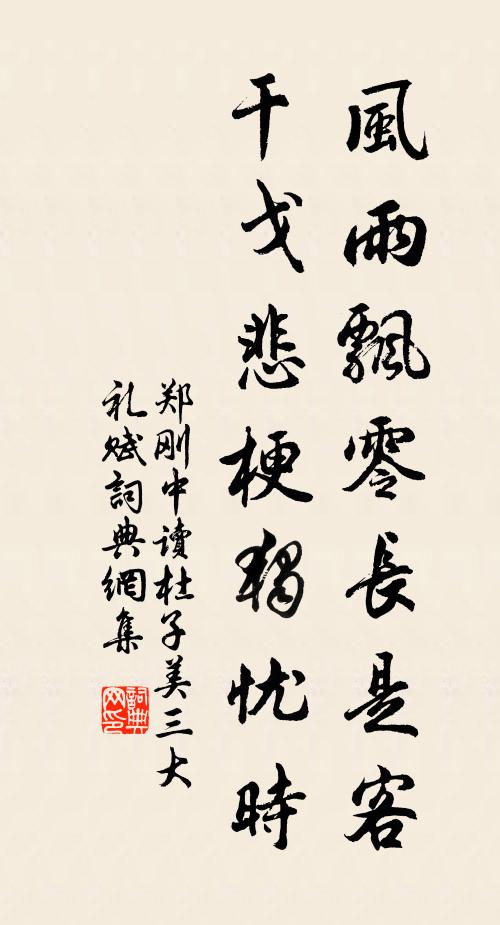 風雨飄零長是客
干戈悲梗獨忧時
郑刚中讀杜子美三大
礼赋詞典網集
詞典网印